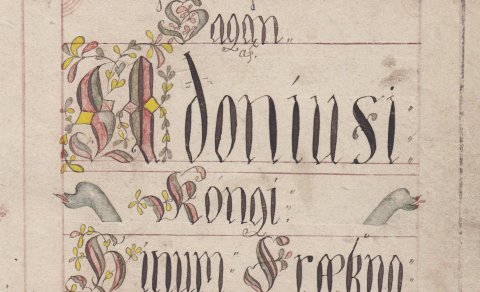 Sagan
af
Adoniusi
Kóngi
Hinum Frækna